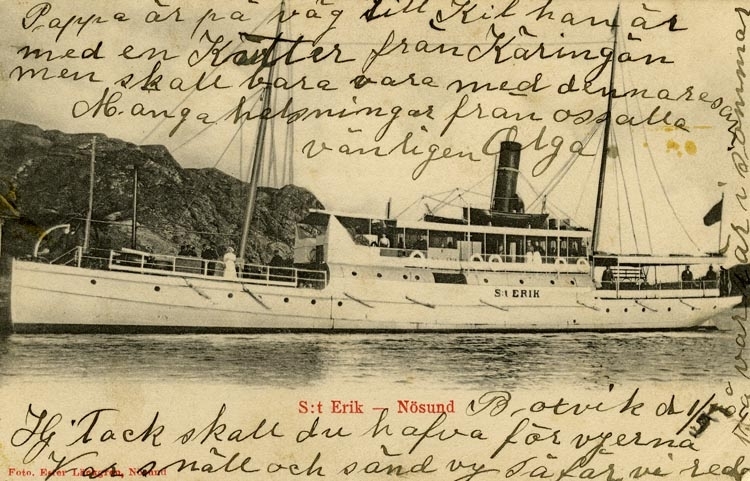 Pappa är på väg till Kil han är
med en Kutter från Käringön
men skall bara vara med denna resa
Manga helsningar från oss alla
vänligen Olga
S:t ERIK
S:t Erik — Nösund
B, otvik d 1/
Hj Tack skall du hafva för vyerna
snäll och sänd vy så får vi red
Foto. Ester Nösund
var i sommar